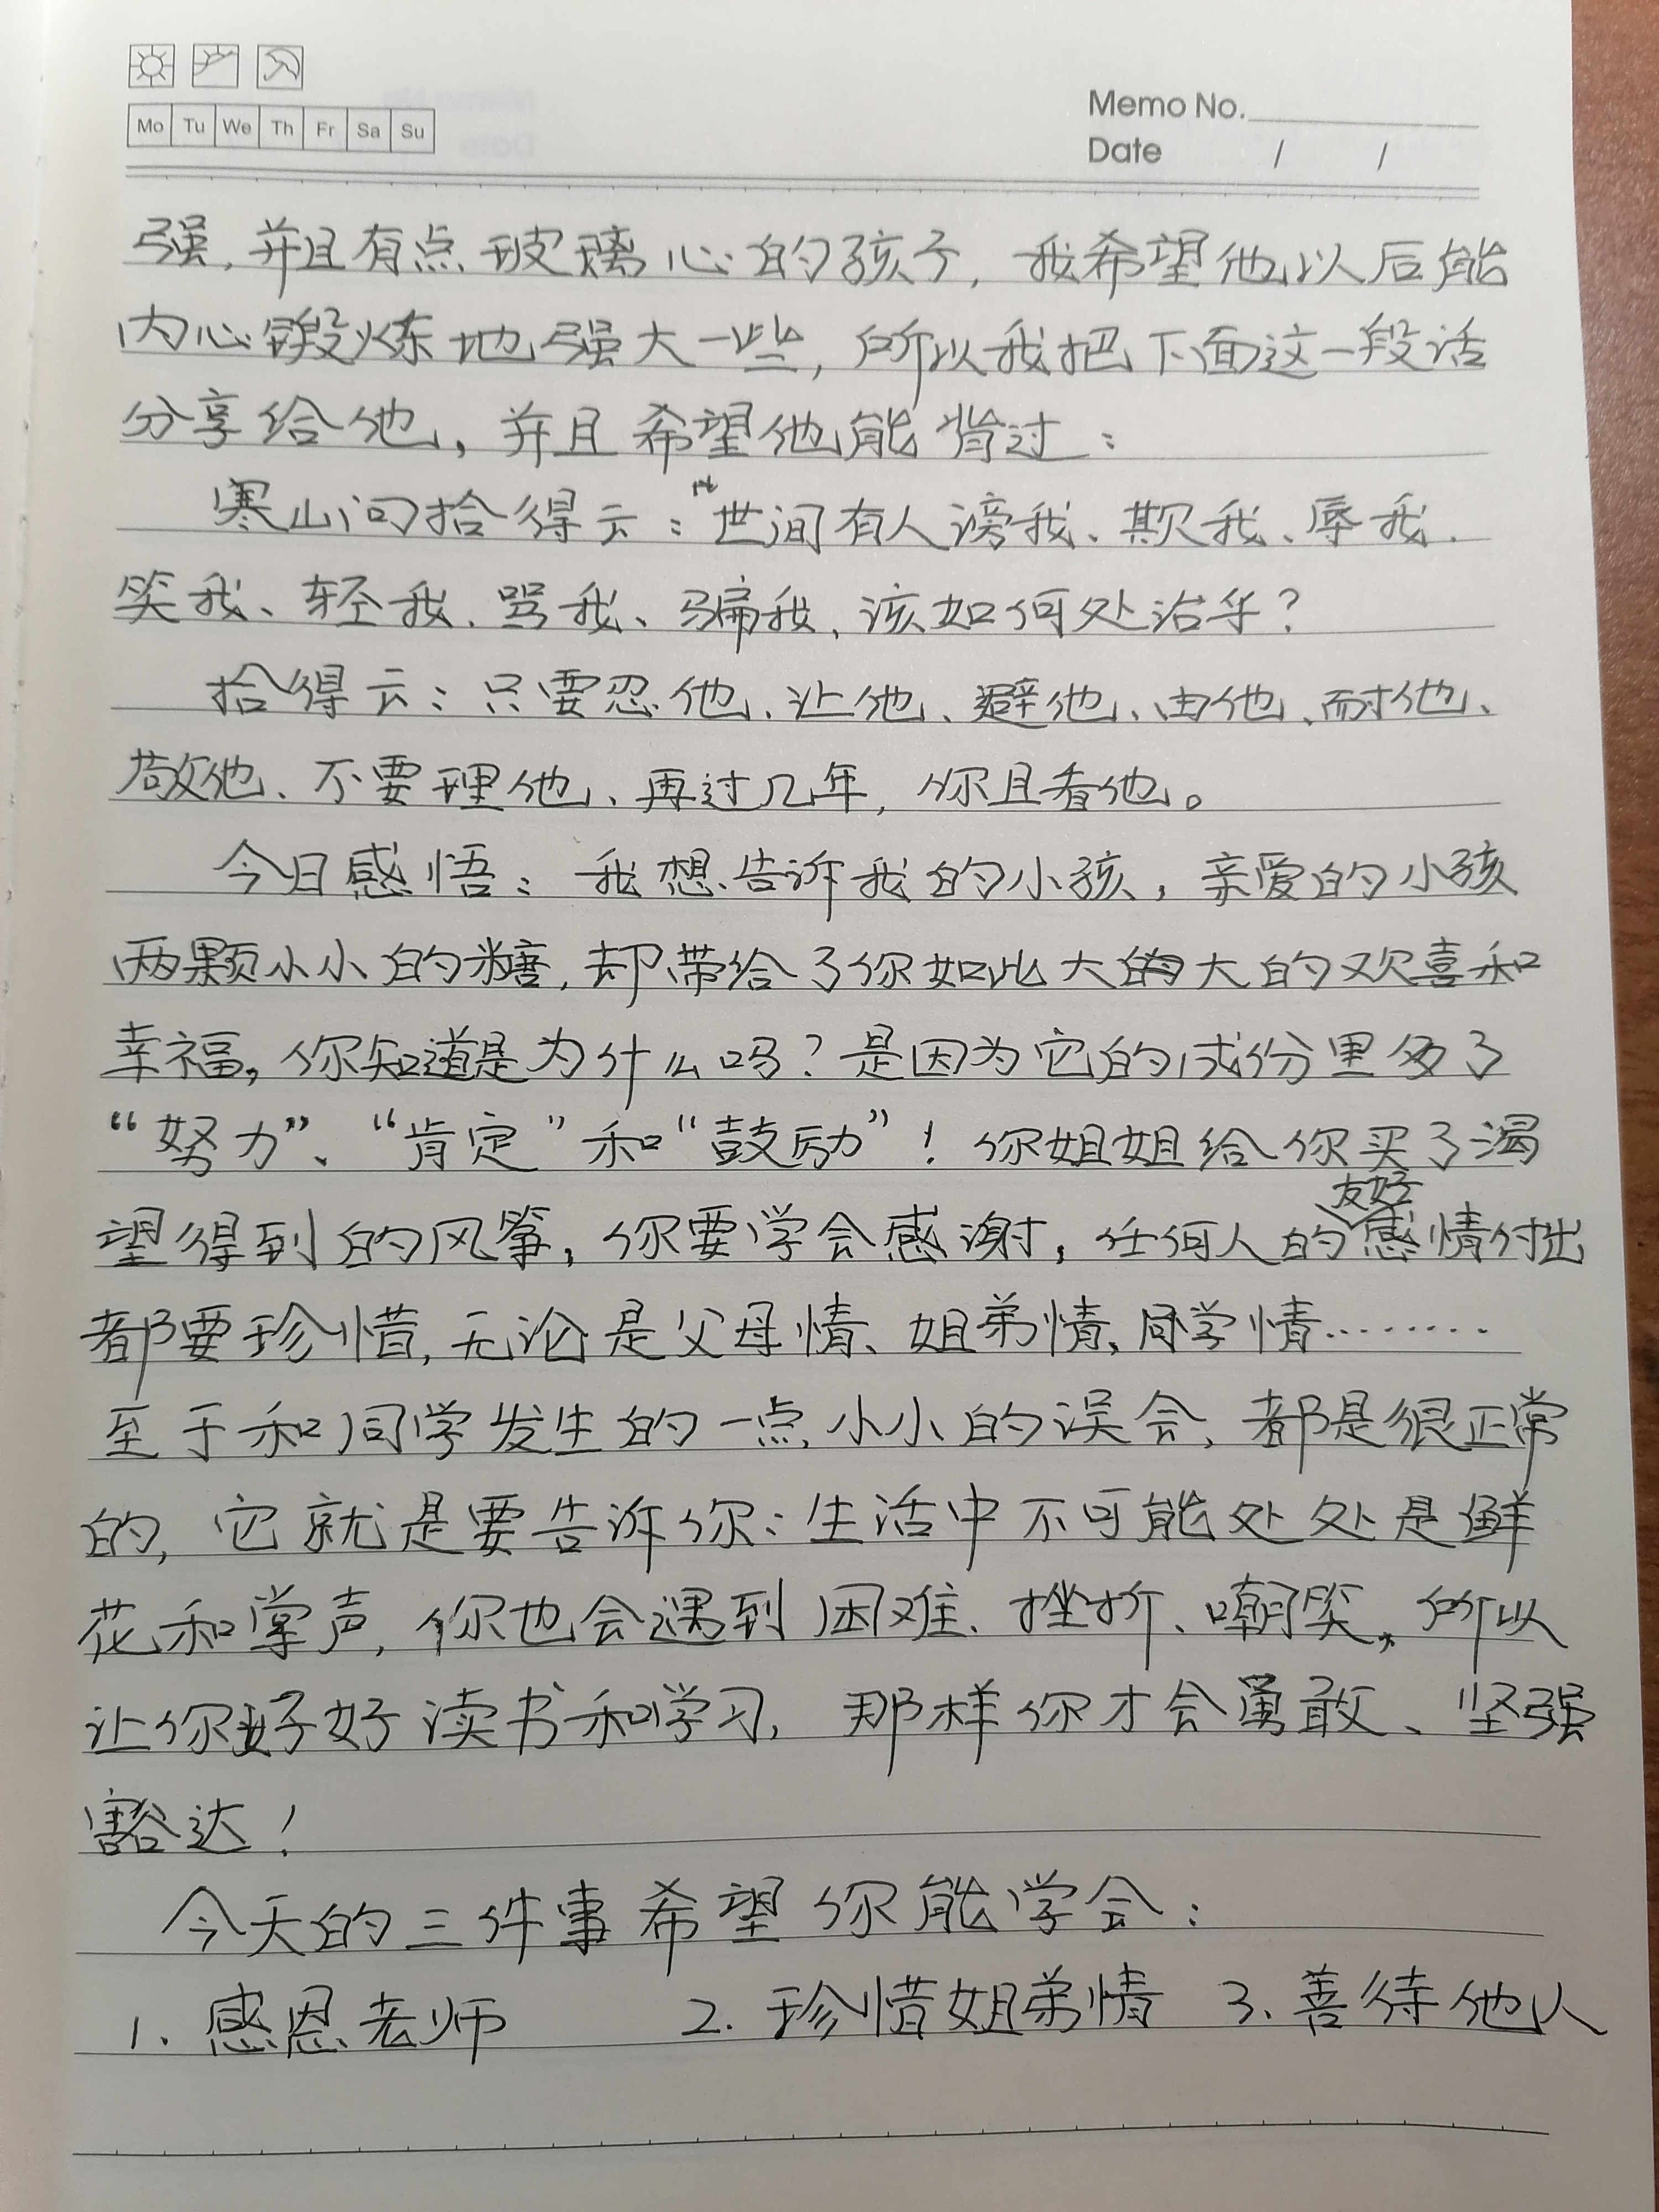 Mo Tu We Th Fr Sa Su
Memo No.
Date / /
强,并且有点玻璃心的孩子,我希望他以后能
内心锻炼地强大一些,所以我把下面这一段话
分享给他,并且希望他能背过:
寒山问拾得云:世间有人谤我、欺我、辱我.
笑我、轻我、骂我、骗我,该如何处治乎?
拾得云:只要忍他、让他、避他、由他、耐他、
敬他、不要理他、再过几年,你且看他。
今日感悟:我想告诉我的小孩,亲爱的小孩
两颗小小的糖,却带给了你如此大的大的欢喜和
幸福,你知道是为什么吗?是因为它的成份里多了
“努力”、“肯定”和“鼓励”!你姐姐给你买了渴
望得到的风筝,你要学会感谢,任何人的友好感情付出
都要珍惜,无论是父母情、姐弟情、同学情………
至于和同学发生的一点小小的误会,都是很正常
的,它就是要告诉你:生活中不可能处处是鲜
花和掌声,你也会遇到困难、挫折、嘲笑,所以
让你好好读书和学习,那样你才会勇敢、坚强
豁达!
今天的三件事希望你能学会:
1. 感恩老师 2. 珍惜姐弟情 3. 善待他人